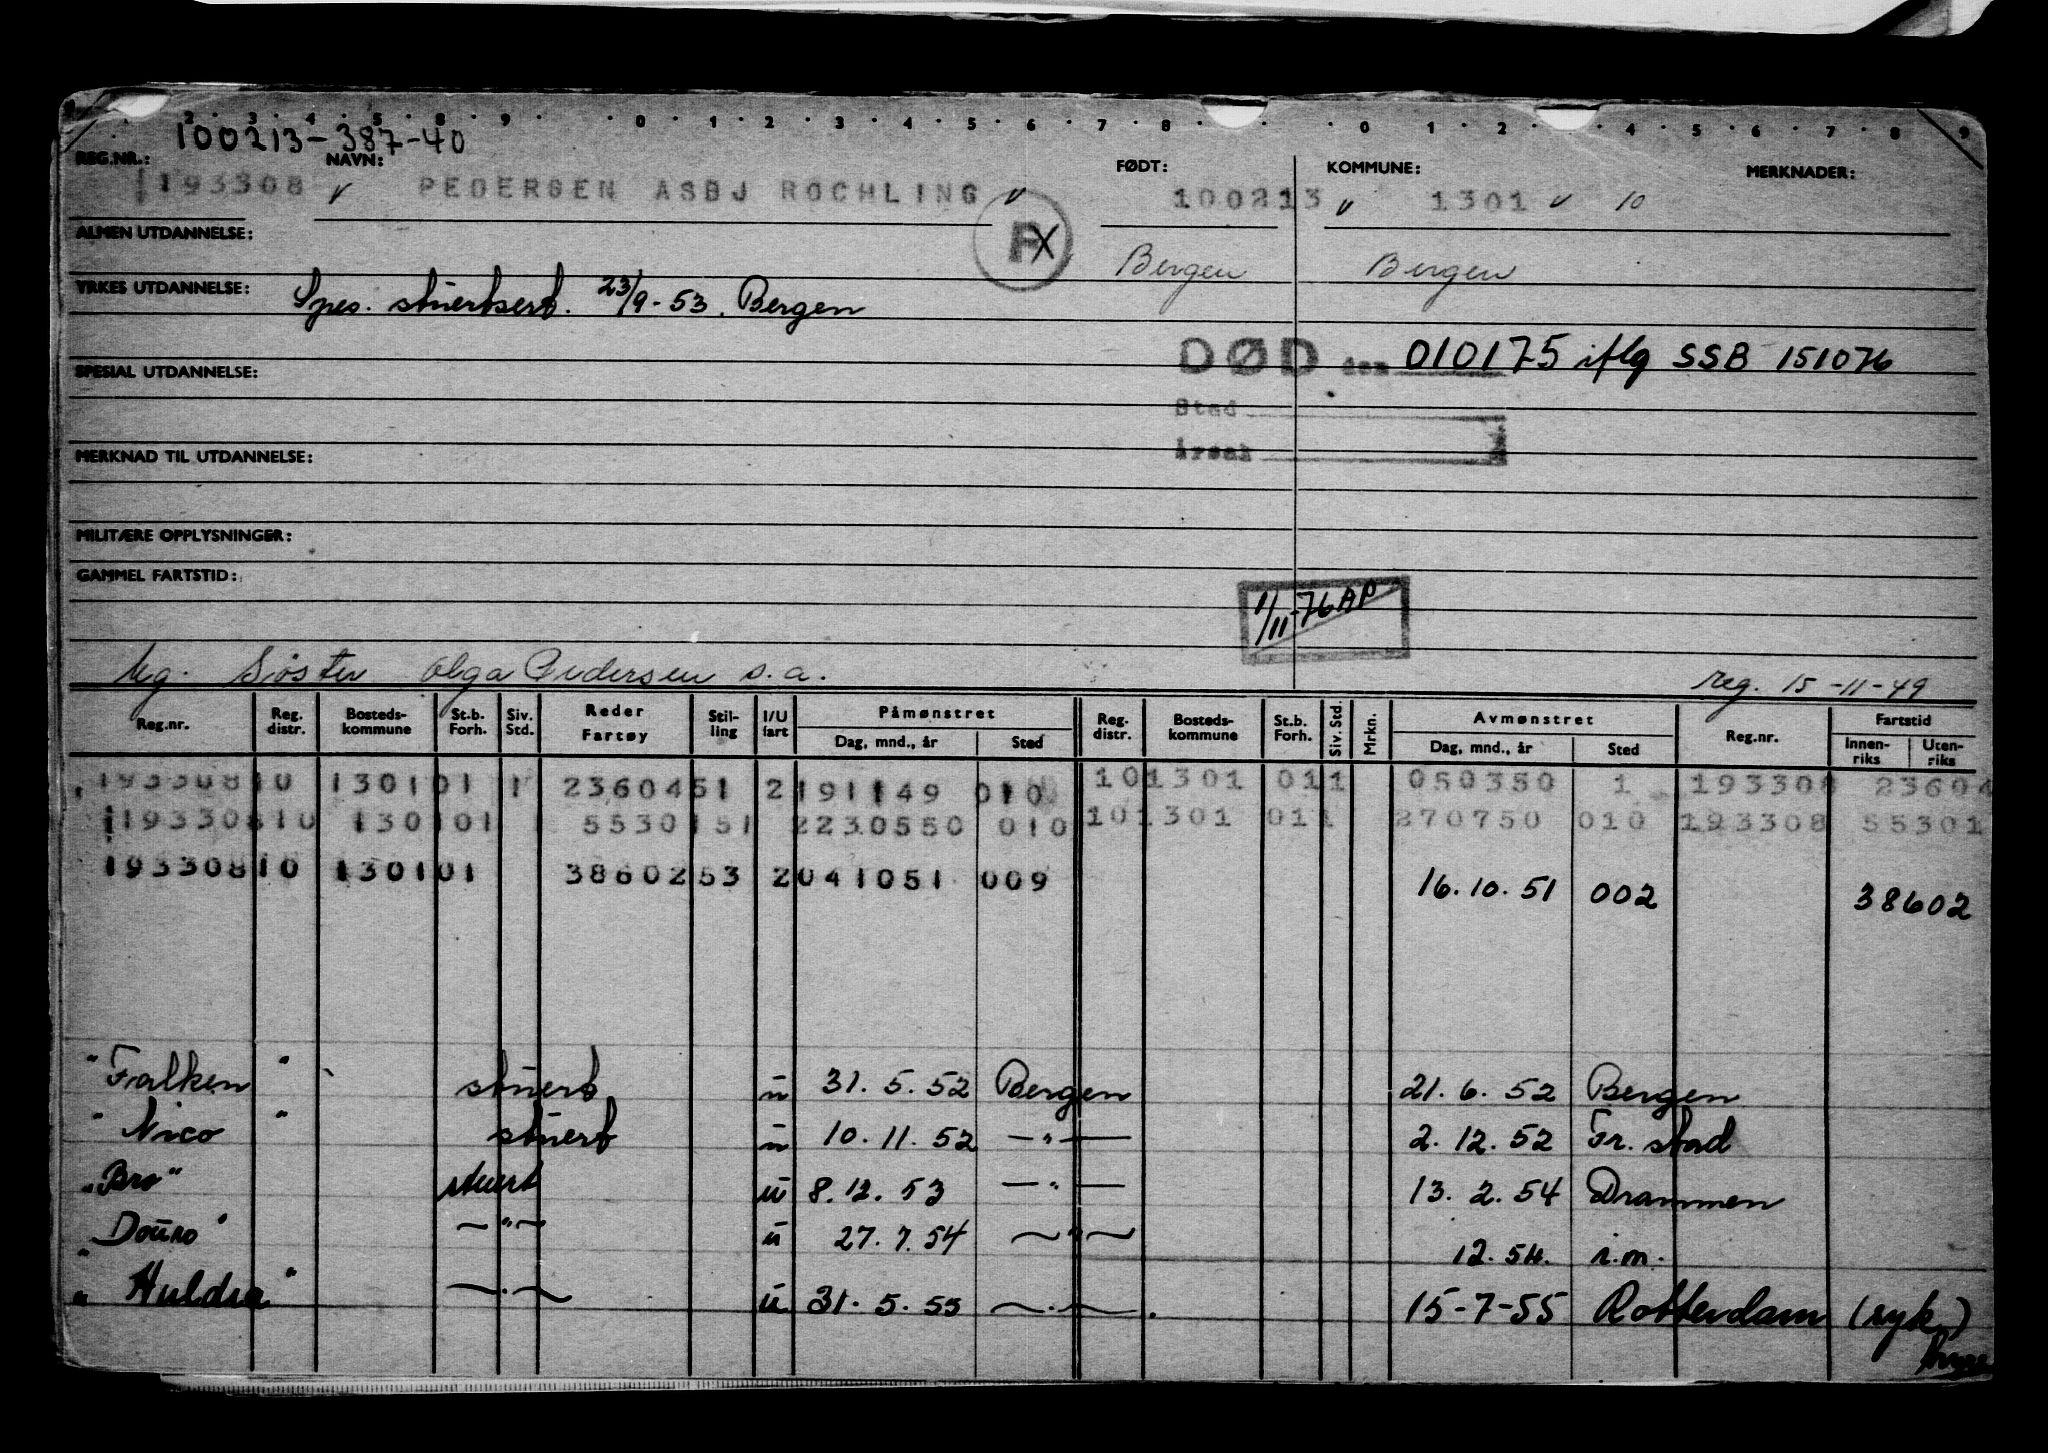 2 3 4 5 8 9 0 1 2 3 4 5 6 7 8 0 1 2 4 5 6 7 8 9
100213-387-40
REG.NR.: NAVN: FØDT: KOMMUNE: MERKNADER:
193308 v PEDERSEN ASBJ ROCHLING v 100213 v 1301 v 10
ALMEN UTDANNELSE:
Bergen Bergen
YRKES UTDANNELSE: Spes. stuertsert. 23/9-53. Bergen
DØD den 010175 iflg SSB 151076
SPESIAL UTDANNELSE:
Sted
Årsak
MERKNAD TIL UTDANNELSE:
MILITÆRE OPPLYSNINGER:
GAMMEL FARTSTID:
1/11-76 AP
Søster Olga Pedersen s.a. reg. 15-11-49
Reg.nr. Reg. distr. Bosteds-kommune St.b. Forh. Siv. Std. Reder Fartøy Stil-ling I/U fart Påmønstret Dag, mnd., år Sted Reg. distr. Bosteds-kommune St.b. Forh. Siv. Std. Mrkn. Avmønstret Dag, mnd., år Sted Reg.nr. Fartstid Innen-riks Uten-riks
193308 10 1301 01 1 23604 51 2 191149 010 10 1301 01 1 050350 1 193308 23604
193308 10 1301 01 55301 51 2 230550 010 10 1301 01 1 270750 010 193308 55301
193308 10 1301 01 38602 53 2 041051 009 16.10.51 002 38602
"Falken" stuert u 31.5.52 Bergen 21.6.52 Bergen
"Nico" stuert u 10.11.52 —"— 2.12.52 Fr.stad
"Bro" stuert u 8.12.53 —"— 13.2.54 Drammen
"Douro" —"— u 27.7.54 —"— 12.54. i.m.
"Huldra" —"— u 31.5.55 —"—. 15-7-55 Rotterdam (syk)